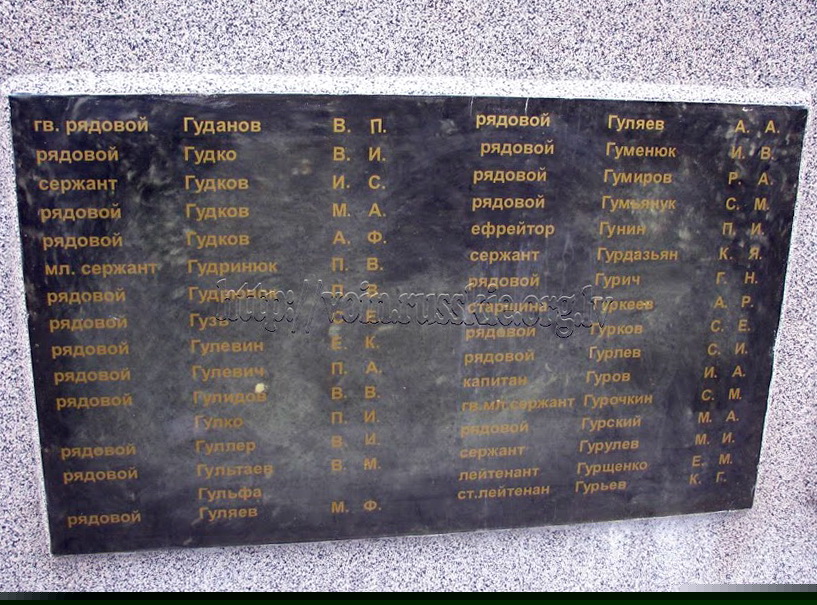 гв. рядовой Гуданов В. П.
рядовой Гудко В. И.
сержант Гудков И. С.
рядовой Гудков М. А.
рядовой Гудков А. Ф.
мл. сержант Гудринюк П. В.
рядовой П. В.
рядовой Гузь Е.
рядовой Гулевин Е. К.
рядовой Гулевич П. А.
рядовой Гулидов В. В.
Гулко П. И.
рядовой Гуллер В. И.
рядовой Гультаев В. М.
Гульфа
рядовой Гуляев М. Ф.
рядовой Гуляев А. А.
рядовой Гуменюк И. В.
рядовой Гумиров Р. А.
рядовой Гумьянук С. М.
ефрейтор Гунин П. И.
сержант Гурдазьян К. Я.
рядовой Гурич Г. Н.
старшина Гуркеев А. Р.
рядовой Гурков С. Е.
рядовой Гурлев С. И.
капитан Гуров И. А.
гв.мл.сержант Гурочкин С. М.
рядовой Гурский М. А.
сержант Гурулев М. И.
лейтенант Гурщенко Е. М.
ст.лейтенан Гурьев К. Г.
http://voin.russkie.org.lv